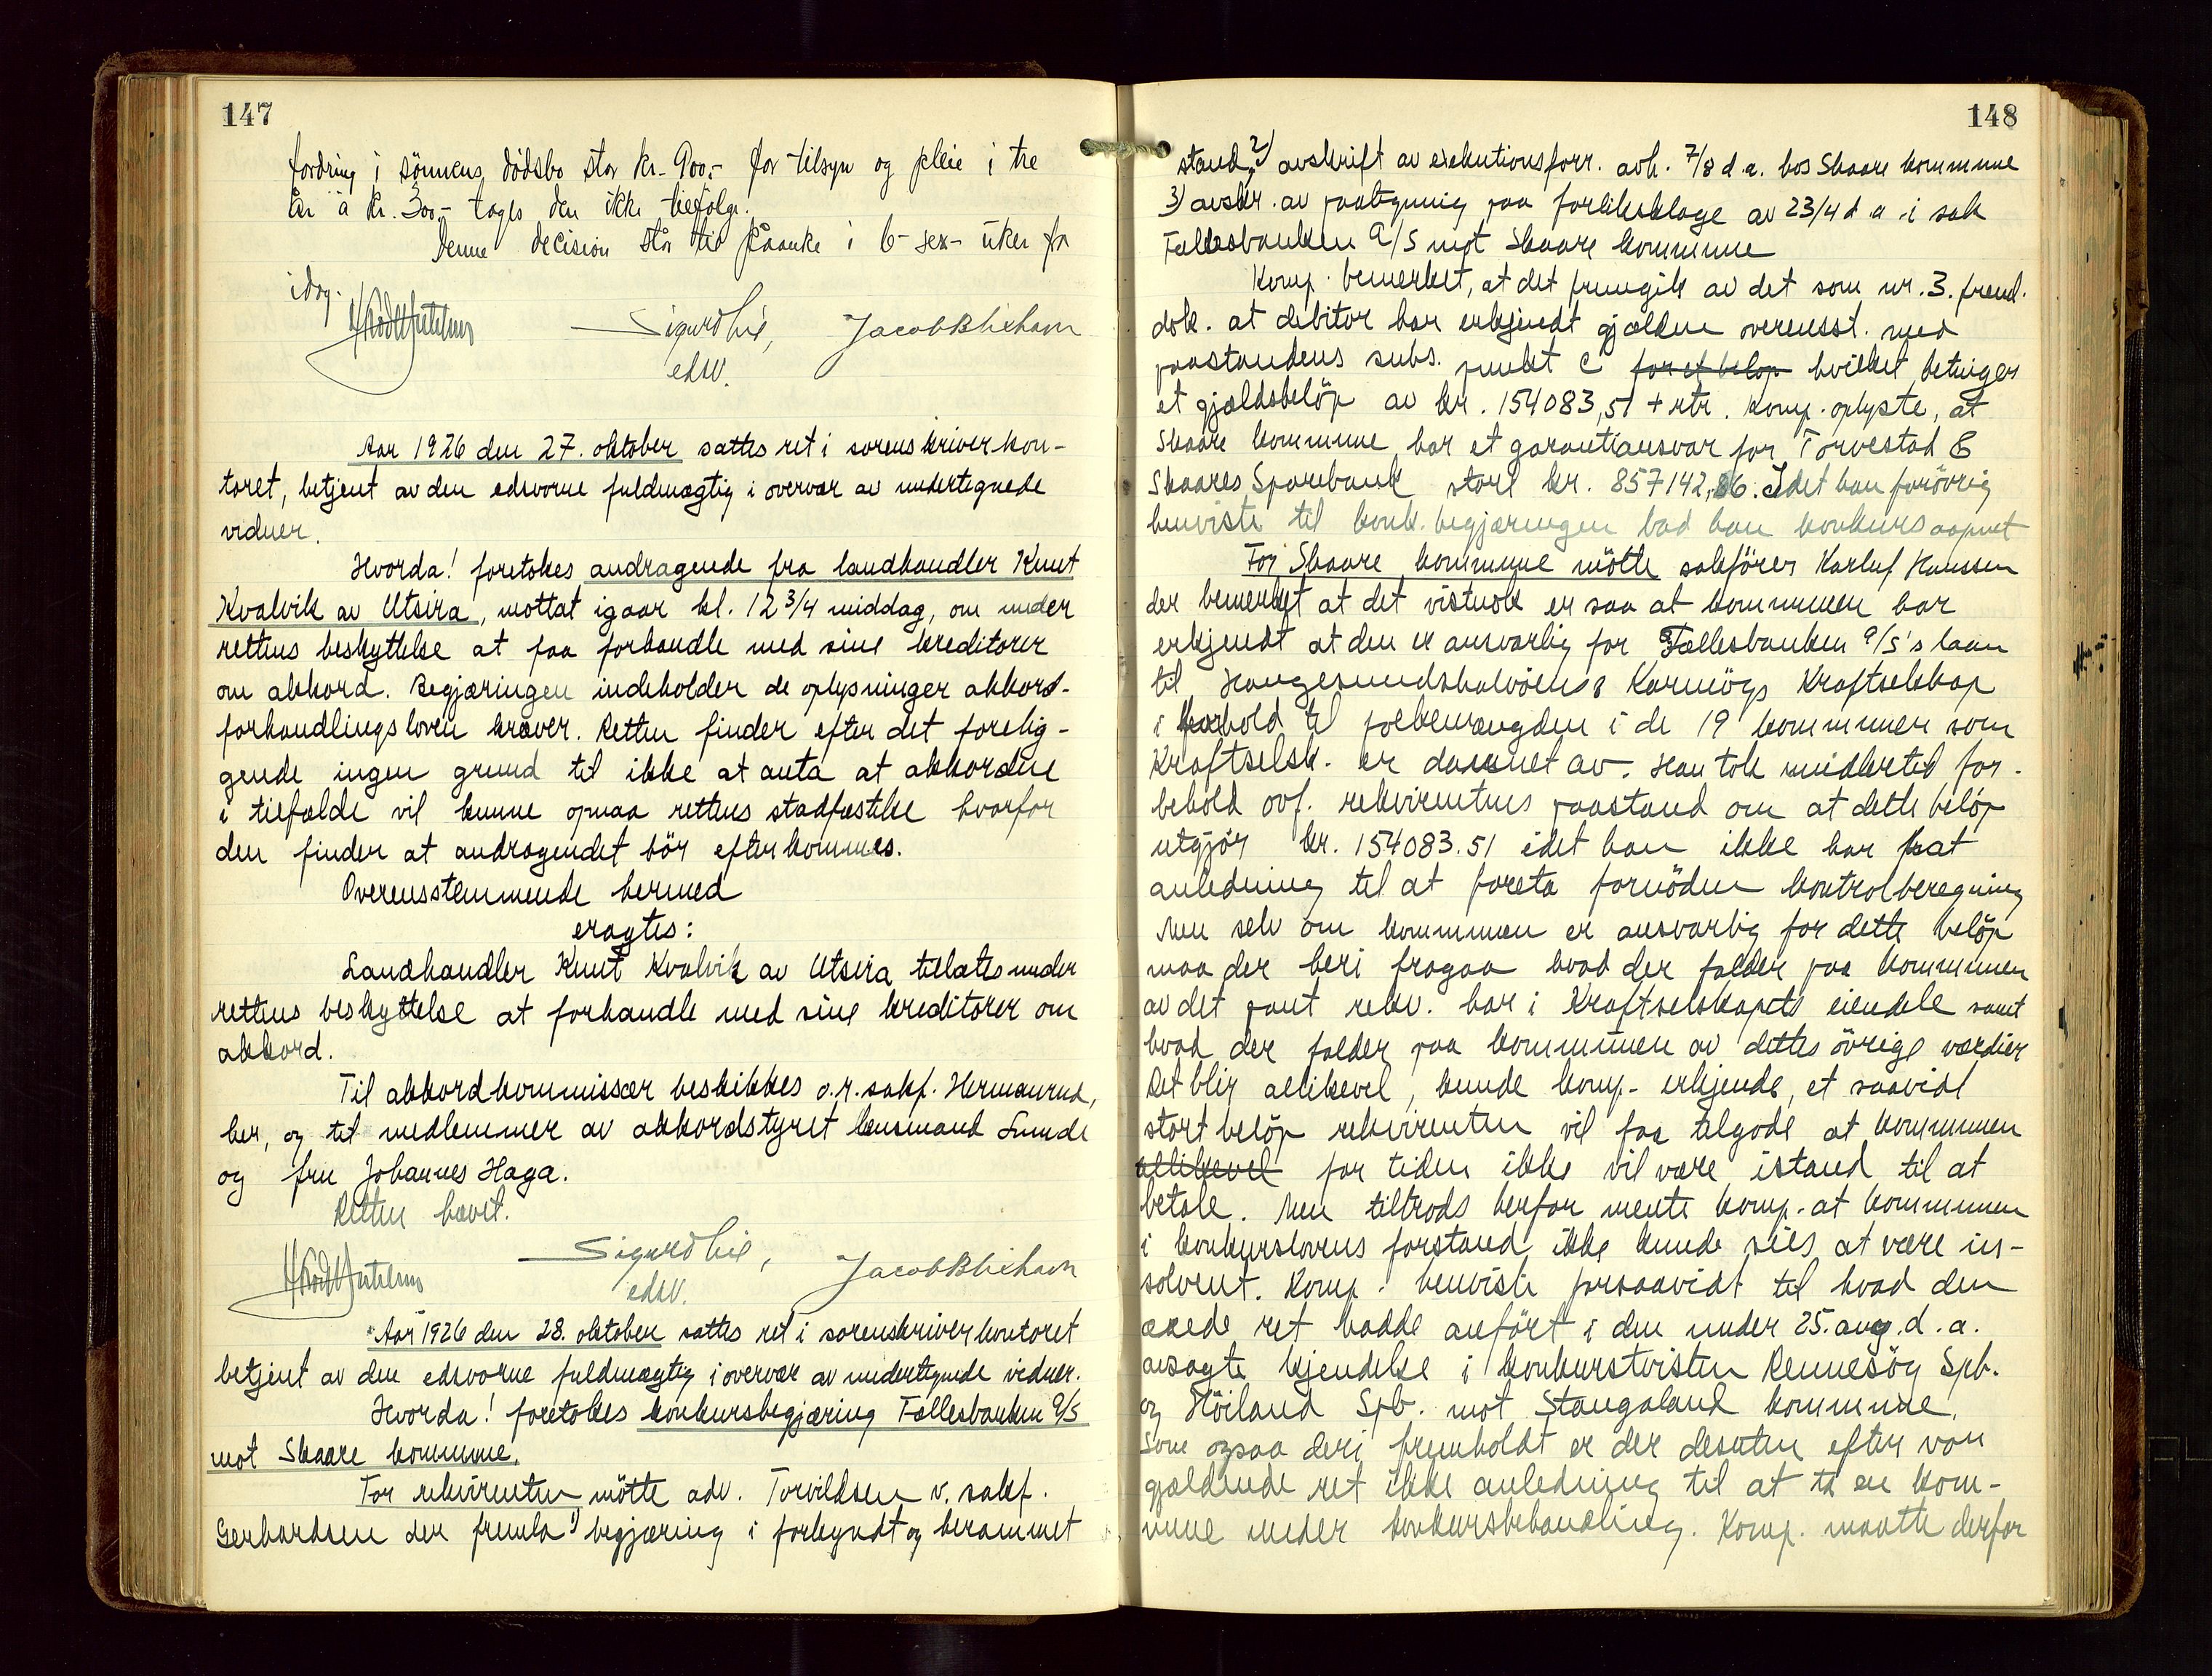 147
fordring i sönnens dödsbo stor kr. 900,- for tilsyn og pleie i tre
år à kr. 300,- tages den ikke tilfølge.
Denne decision står til påanke i 6-sex- uker fra
idag.
Sigurd Lie, Jacob Blixhavn
edsv.
Aar 1926 den 27. oktober sattes ret i sorenskriverkon-
toret, betjent av den edsvorne fuldmægtig i overvær av undertegnede
vidner.
Hvorda! foretokes andragende fra landhandler Knut
Kvalvik av Utsira, mottat igaar kl. 12 3/4 middag, om under
rettens beskyttelse at faa forhandle med sine kreditorer
om akkord. Begjæringen indeholder de oplysninger akkord-
forhandlingsloven kræver. Retten finder efter det forelig-
gende ingen grund til ikke at anta at akkorden
i tilfælde vil kunne opnaa rettens stadfæstelse hvorfor
den finder at andragendet bör efterkommes.
Overensstemmende hermed
eragtes:
Landhandler Knut Kvalvik av Utsira tillates under
rettens beskyttelse at forhandle med sine kreditorer om
akkord.
Til akkordkommissær beskikkes o.r.sakf. Hermanrud,
her, og til medlemmer av akkordstyret lensmand Lunde
og fru Johannes Haga.
Retten hævet.
Sigurd Lie, Jacob Blixhavn
edsv.
Aar 1926 den 28. oktober sattes ret i sorenskriverkontoret
betjent av den edsvorne fuldmægtig i overvær av undertegnede vidner.
Hvorda! foretokes konkursbegjæring Fællesbanken A/S
mot Skaare kommune.
For rekvirenten mötte adv. Torvildsen v. sakf.
Gerhardsen der fremla 1) begjæring i forkyndt og berammet
148
stand, 2) avskrift av exekutionsforr. avh. 7/8 d.a. hos Skaare kommune
3) avskr. av paategning paa forliksklage av 23/4 d.a. i sak
Fællesbanken A/S mot Skaare kommune
Komp. bemerket, at det fremgik av det som nr. 3. freml.
dok. at debitor har erkjendt gjælden overensst. med
paastandens subs. punkt C for et beløp hvilket betinger
et gjældsbelöp av kr. 154083,51 + rtr. Komp. oplyste, at
Skaare kommune har et garantiansvar for Torvestad &
Skaares Sparebank stort kr. 857142,86. Idet han forövrig
henviste til konk.begjæringen bad han konkurs aapnet
For Skaare kommune mötte sakförer Karluf Hanssen
der bemerket at det vistnok er saa at kommunen har
erkjendt at den er ansvarlig for Fællesbanken A/S's laan
til Haugesundshalvöens & Karmöys Kraftselskap
i forhold til folkemængden i de 19 kommuner som
Kraftselsk. er dannet av. Han tok imidlertid for-
behold ovf. rekvirentens paastand om at dette belöp
utgjör kr. 154083.51 idet han ikke har hat
anledning til at foreta fornöden kontrolberegning
Men selv om kommunen er ansvarlig for dette belöp
maa der heri fragaa hvad der falder paa kommunen
av det pant rekv. har i Kraftselskapets eiendele samt
hvad der falder paa kommunen av dettes övrige værdier
Det blir allikevel, kunde komp. erkjende, et saavidt
stort belöp rekvirenten vil faa tilgode at kommunen
allikevel for tiden ikke vil være istand til at
betale. Men tiltrods herfor mente komp. at kommunen
i konkurslovens forstand ikke kunde sies at være in-
solvent. Komp. henviste forsaavidt til hvad den
ærede ret hadde anfört i den under 25. aug. d.a.
avsagte kjendelse i konkurstvisten Rennesöy Spb.
og Höiland Spb. mot Stangaland kommune.
Som ogsaa deri fremholdt er der desuten efter vor
gjældende ret ikke anledning til at ta en kom-
mune under konkursbehandling. Komp. maatte derfor